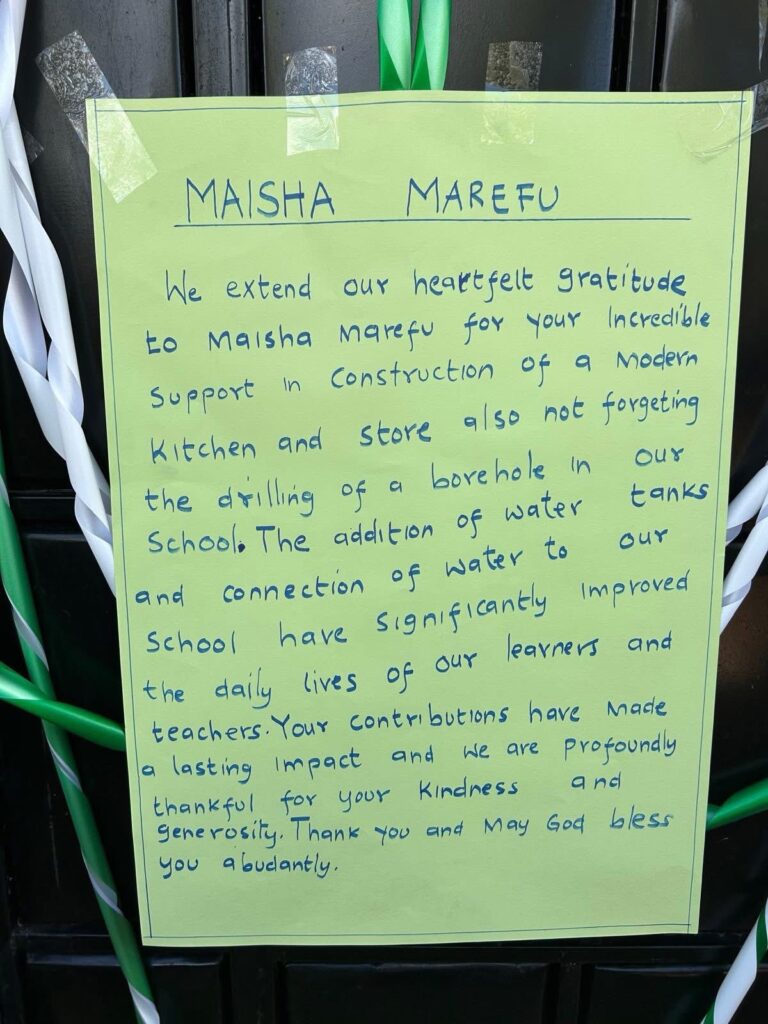 MAISHA MAREFU
We extend our heartfelt gratitude
to Maisha Marefu for your Incredible
Support in Construction of a Modern
Kitchen and store also not forgeting
the drilling of a borehole in our
School. The addition of water tanks
and connection of water to our
School have significantly improved
the daily lives of our learners and
teachers. Your contributions have Made
a lasting impact and we are profoundly
thankful for your kindness and
generosity. Thank you and May God bless
you abudantly.